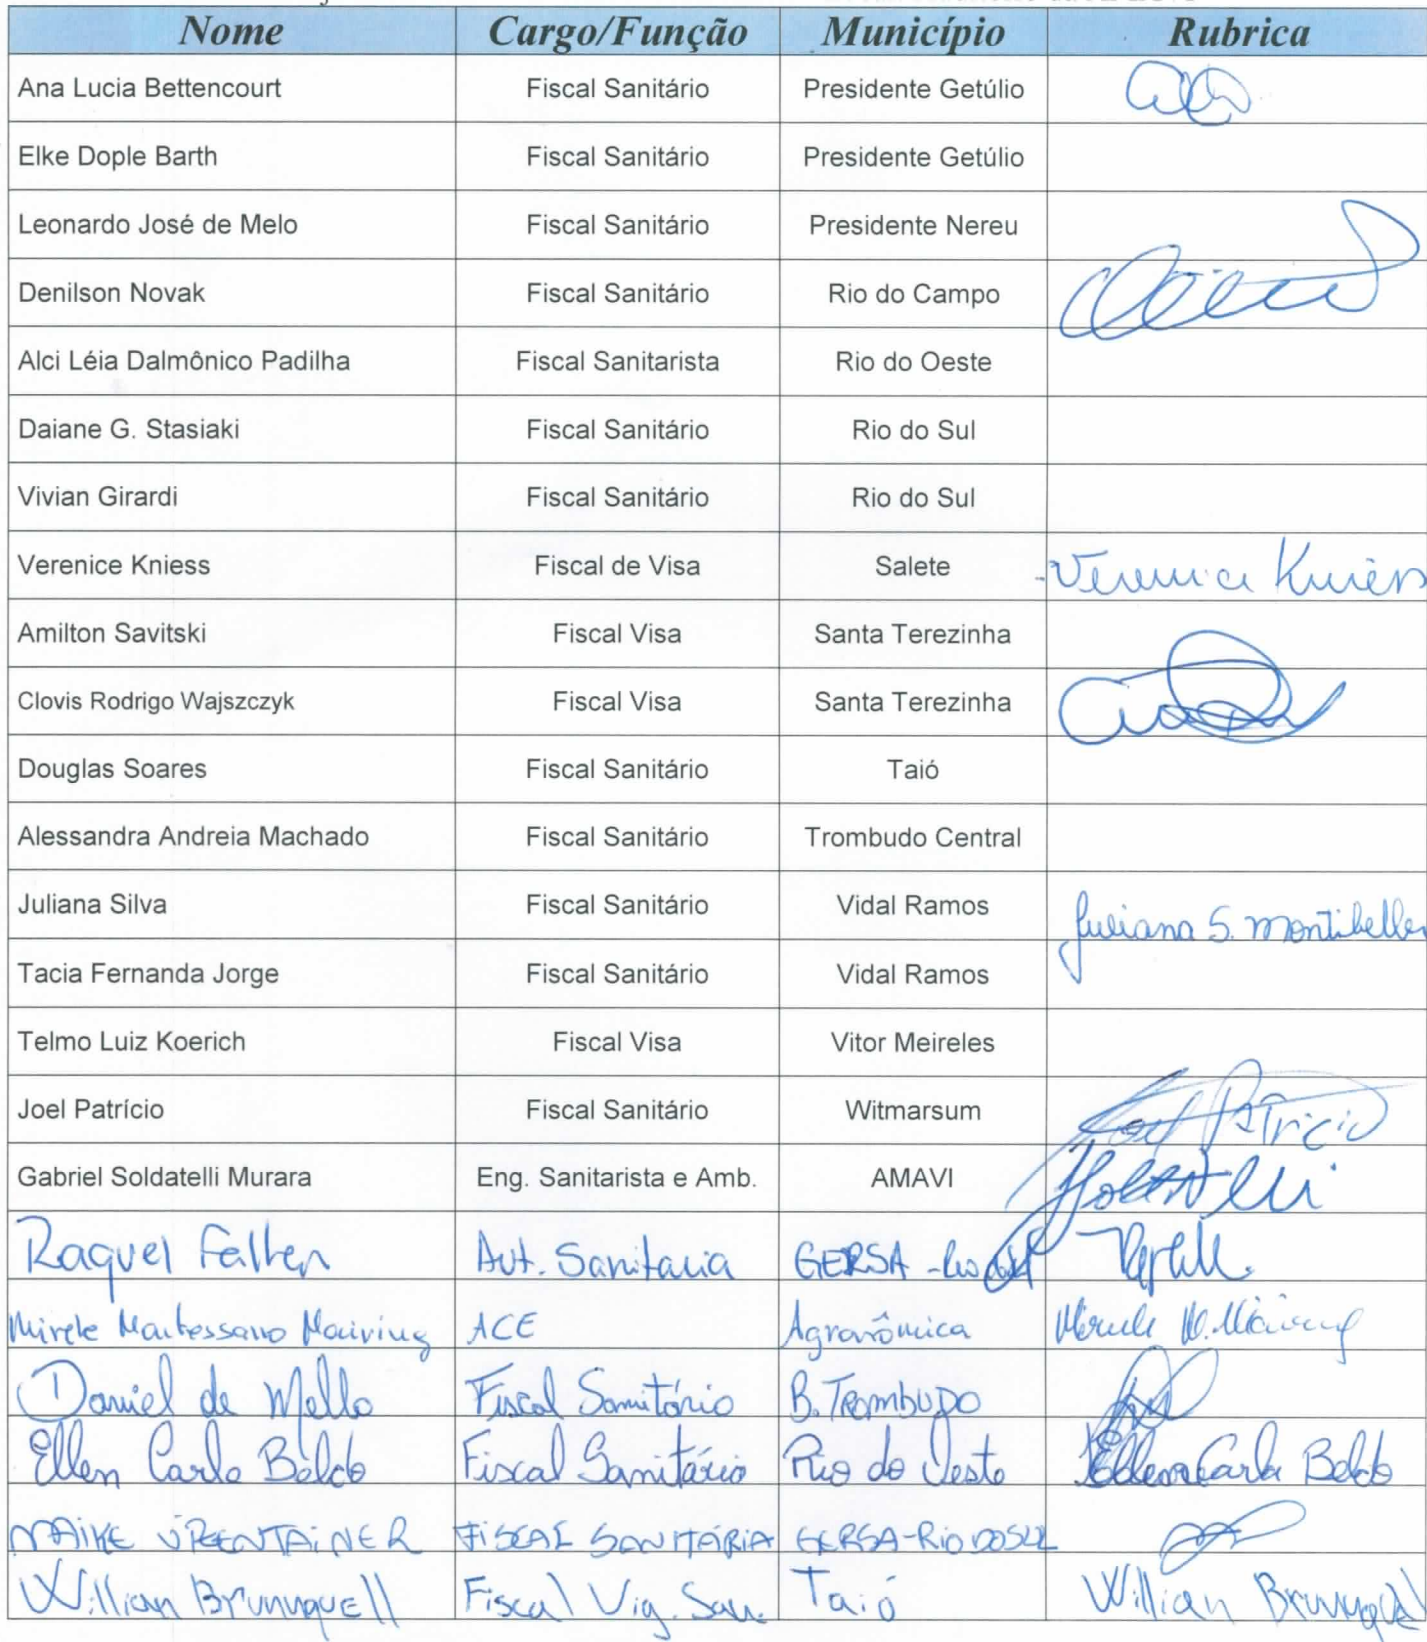 Nome Cargo/Função Município Rubrica
Ana Lucia Bettencourt Fiscal Sanitário Presidente Getúlio
Elke Dople Barth Fiscal Sanitário Presidente Getúlio
Leonardo José de Melo Fiscal Sanitário Presidente Nereu
Denilson Novak Fiscal Sanitário Rio do Campo
Alci Léia Dalmônico Padilha Fiscal Sanitarista Rio do Oeste
Daiane G. Stasiaki Fiscal Sanitário Rio do Sul
Vivian Girardi Fiscal Sanitário Rio do Sul
Verenice Kniess Fiscal de Visa Salete Verenice Kniess
Amilton Savitski Fiscal Visa Santa Terezinha
Clovis Rodrigo Wajszczyk Fiscal Visa Santa Terezinha
Douglas Soares Fiscal Sanitário Taió
Alessandra Andreia Machado Fiscal Sanitário Trombudo Central
Juliana Silva Fiscal Sanitário Vidal Ramos Juliana S. Montibeller
Tacia Fernanda Jorge Fiscal Sanitário Vidal Ramos
Telmo Luiz Koerich Fiscal Visa Vitor Meireles
Joel Patrício Fiscal Sanitário Witmarsum Joel Patricio
Gabriel Soldatelli Murara Eng. Sanitarista e Amb. AMAVI Soldatelli
Raquel Aut. Sanitaria GERSA
Mirele ACE Agronômica
Daniel de Mello Fiscal Sanitário B. Trombudo
Ellen Carla Beldo Fiscal Sanitário Rio do Oeste Ellen Carla Beldo
MAIKE FISCAL SANITÁRIA GERSA-RIO DO SUL
Willian Brunnquell Fiscal Vig. San. Taió Willian Brunnquell